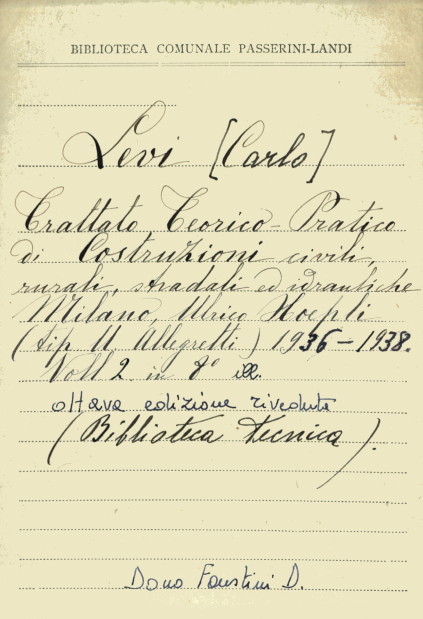 BIBLIOTECA COMUNALE PASSERINI-LANDI
Levi [Carlo]
Trattato Teorico-Pratico
di Costruzioni civili,
rurali, stradali ed idrauliche
Milano, Ulrico Hoepli
(tip. U. Allegretti) 1936-1938.
Voll 2. in 8° ill.
ottava edizione riveduta
(Biblioteca tecnica).
Dono Faustini D.